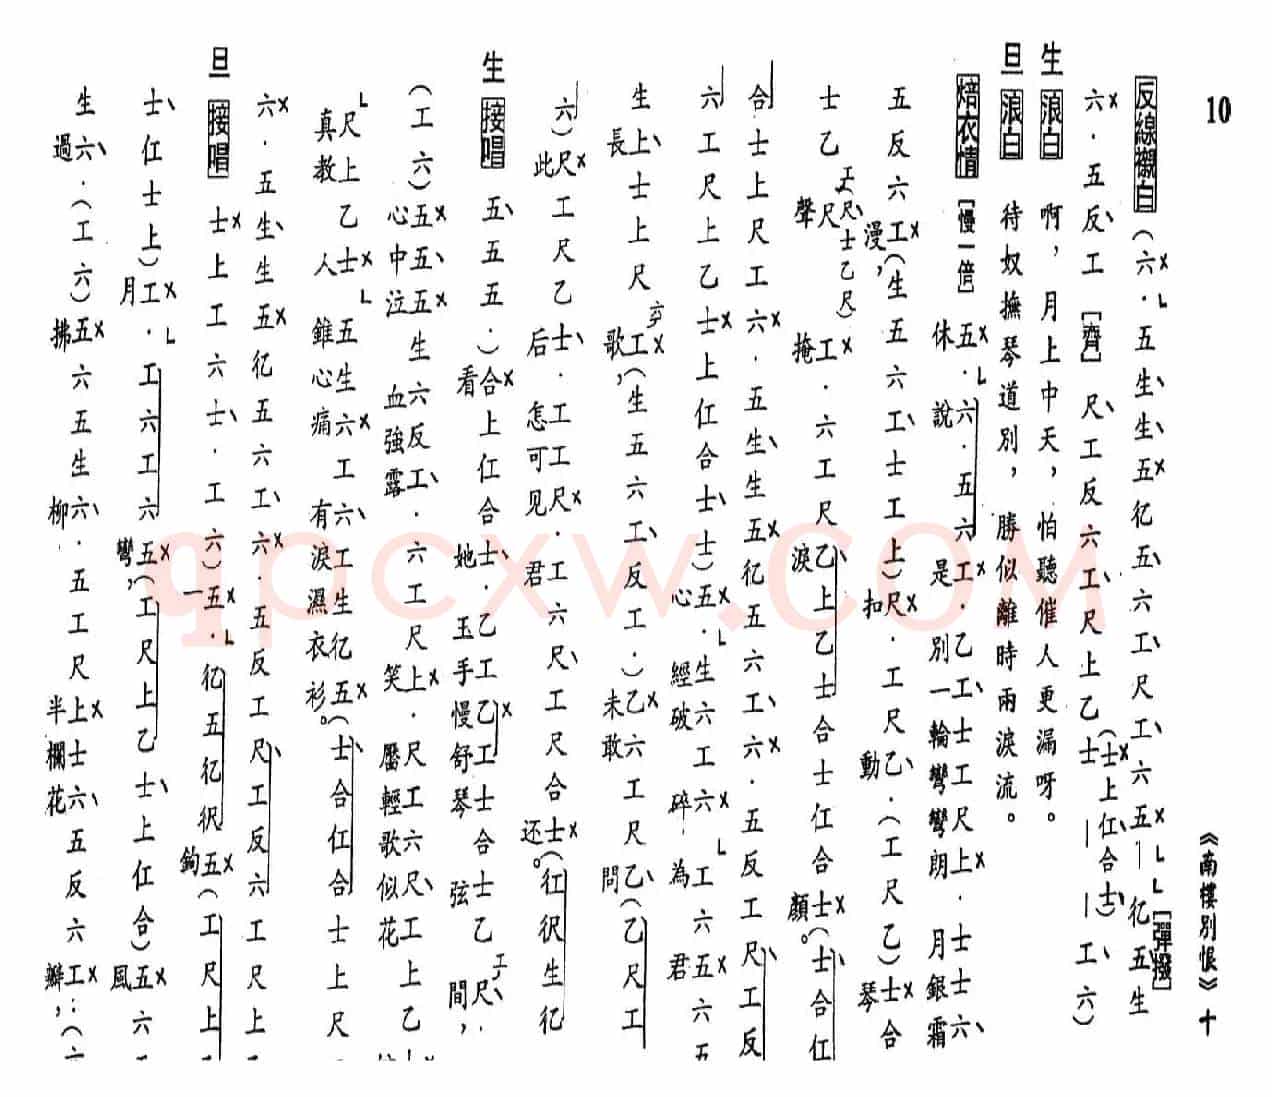 10
《南樓別恨》十
反線襯白（六．五生生五亿五六工尺工六五｜亿五生［彈撥］
六．五反工［齊］尺工反六工尺上乙士（士上仜合士｜｜工六）
生 浪白 啊，月上中天，怕聽催人更漏呀。
旦 浪白 待奴撫琴道別，勝似離時兩淚流。
焙衣情［慢一倍］五休．六說．五六工是．乙工別士一工輪尺彎上彎．朗士士月六銀霜
五反六工漫，（生五六工士工上）尺扣．工尺乙動．（工尺乙）士琴合
士乙尺聲（尺士乙尺）工掩．六工尺乙淚上乙士合士仜合士顏。（士合仜
合士上尺工六．五生生五亿五六工六．五反工尺工反
六工尺上乙士上仜合士士）五心．生經六破工六碎工為六五君六五
生上長士上尺工歌，（生五六工反工．）乙未六敢工尺乙問（乙尺工
六）尺此工尺乙士后．工怎工可尺見．工君六尺工尺合士还。（仜伬生亿
生 接唱 五五五．）合看上仜合士她．乙玉工手乙慢工舒士琴合士弦乙尺間，
（工六）五心五中五泣生六血反強工露．六工尺上笑．尺靨工輕六歌尺似工花上乙
尺真上教乙士人五雖生心六痛工六有工淚生濕亿衣五衫。（士合仜合士上尺
六．五生生五亿五六工六．五反工尺工反六工尺上
旦 接唱 士上工六士．工六）五一．亿五亿伬五鉤（工尺上
士仜士上）工月．工六工六五彎，（工尺上乙士上仜合）五風六
生六過．（工六）五拂六五生六柳．五工尺上半士欄六花五反六工瓣，（
qpcxw.com